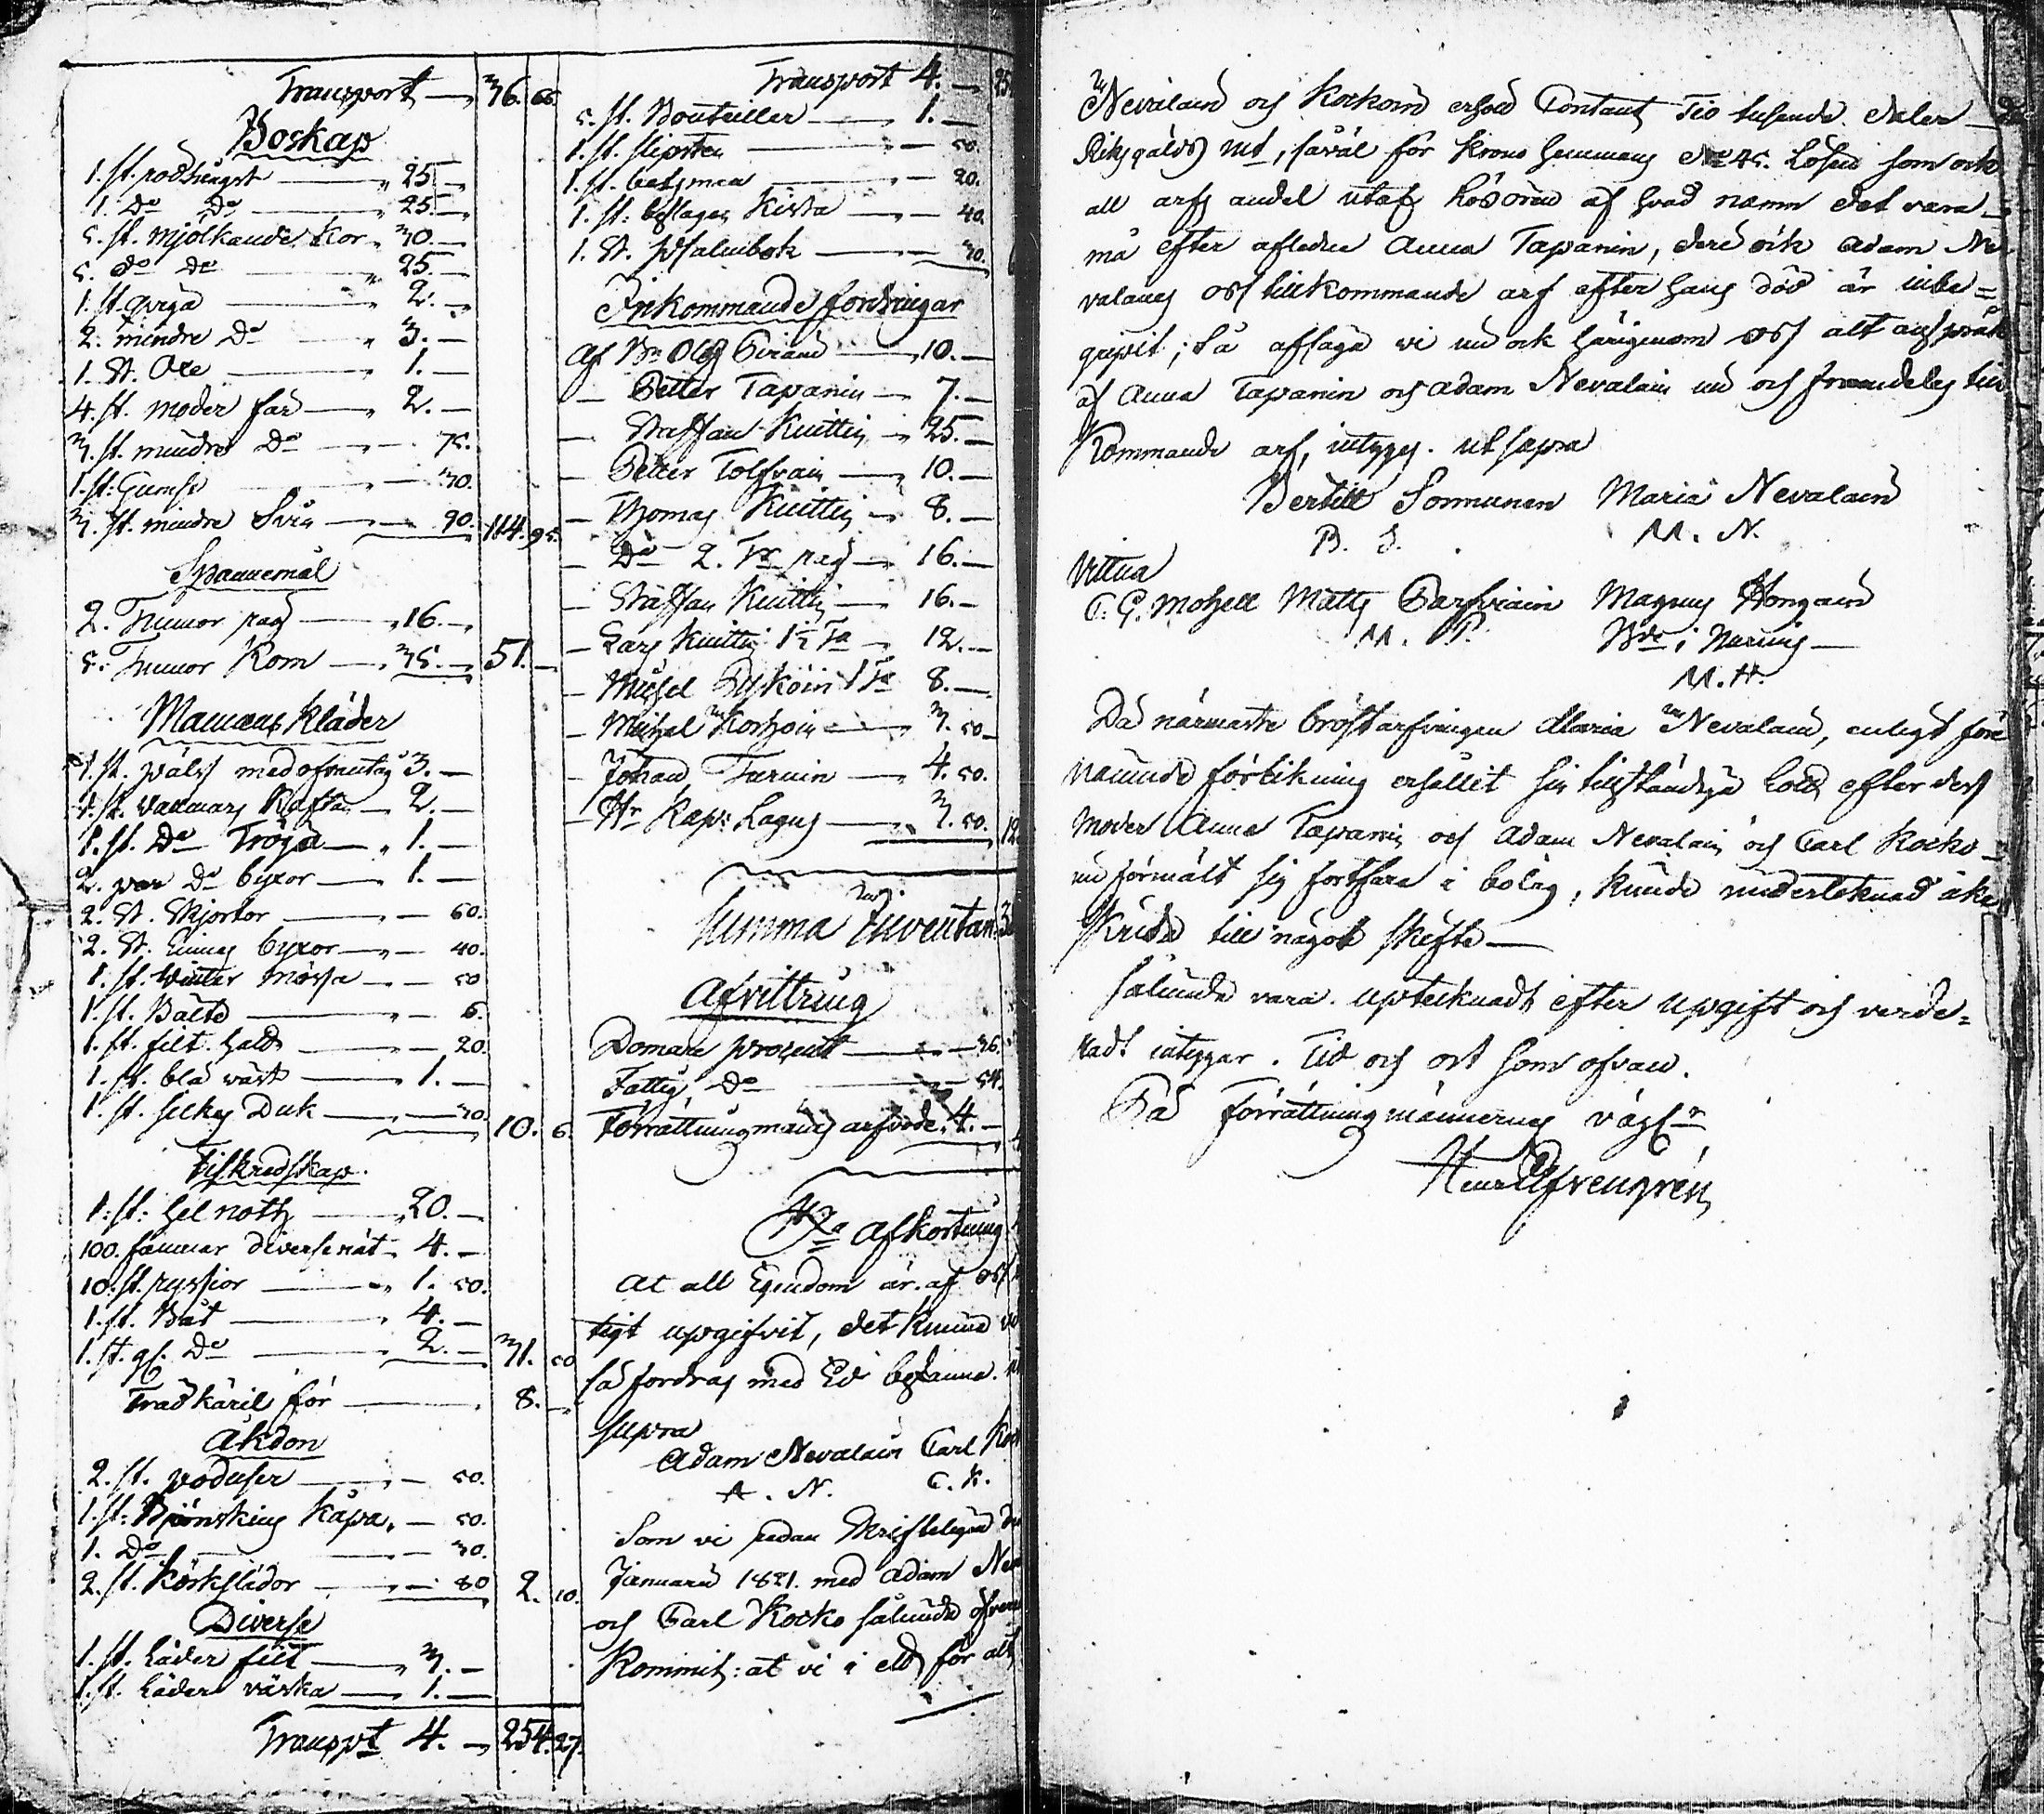 Transport — 36. 66.
Boskap
1. st. rödhingst — " 25. —
1. Do Do — " 25. —
5. st. mjölkande Kor " 30. —
5. do do — " 25. —
1. st. qviga — " 2. —
2. mindre Do — " 3. —
1. St. Oxe — " 1. —
4. st. moder får — " 2. —
3. st. mindre Do — " — 75.
1. st: Gumse — " — 30.
3. st. mindre Svin — " — 90. 114. 95.
Spannemål
2. Tunnor råg — " 16. —
5. Tunnor Korn — " 35. — 51. —
Mansens kläder
1. st. päls med 3. —
1. st. vadmars Kaftan — 2. —
1. st. Do Tröja — " 1. —
2. par Do byxor — " 1. —
2. St. Skjortor — " — 60.
2. St. byxor — " — 40.
1. st. Winter mössa — " — 50
1. st. Bälte — " — 6.
1. st. filt. hatt — " — 20.
1. st. blå väst — " 1. —
1. st. silkes Duk — " — 30. 10. 6.
Fiskredskap.
1: st: hel noth — " 20. —
100. famnar diverse nät " 4. —
10: st. ryssior — " 1. 50.
1. st. Båt — " 4. —
1. st. gl. Do — " 2. — 31. 50
Trädkäril för — " 8. —
Åkdon
2. st. — " — 50.
1. st: Kåpa " — 50.
1. Do — " — 30.
2. st. Körkslädor — " — 80 2. 10.
Diverse
1. st. Läder filt — " 3. —
1. st. Läder väska — " 1. —
Transpt 4. — 254. 27.
Transport 4. — 25
5. st. Bouteiller — " 1. —
1. st. slipsten — " — 50.
1. st. betsman — " — 20.
1. st: beslagen Kista — " — 40.
1. St. Psalmbok — " — 30.
Inkommande fordringar
Af Bn Olof — " 10. —
— Petter Tapanin — " 7. —
— Staffan Knittin — " 25. —
— Petter Tolfvain — " 10. —
— Thomas Knittin — " 8. —
— Do 2. Tr råg — " 16. —
— Staffan Knittin — " 16. —
— Lars Knittin 1½ Tr " 12. —
— Michel 1 Tr 8. —
— Michel Korhoin — " 3. 50 —
— Johan Turuin — " 4. 50.
— Hr Kap: Lagus — " 3. 50. 12
Summa Inventar. 3
Afvittring
Domare procent — " — 36.
Fattig, do — " — 54.
Förrättningsmäns arfvode. 4. —
Afkortning
At all Egendom är af oss
tigt upgifvit, det kunna
så fordras med Ed bekänna.
supra
Adam Nevalain Carl Ko
A. N. C. K.
Som vi redan skrifteligen
Januarii 1821. med Adam Ne
och Carl Kocko sålunda öfver
kommit: at vi i ett för alt
Nevalain och Kockoin erhold Contant Tio tusende daler
Riksgälds mt, såväl för Krono hemmans No 45. Lösen som ock
all arfs andel utaf Lösören af hvad namn det vara
må efter afledne Anna Tapanin, deri ock Adam Ne
valains oss tillkommande arf efter hans död är inbe=
gripit; Så afsäga vi nu ock härigenom oss alt anspråk
af Anna Tapanin och Adam Nevalain nu och framdeles till
Kommande arf, intygas. ut supra
Bertill Sormunen Maria Nevalain
B. S. M. N.
Vittna
C. G. Mosell Matts Parfviain Magnus Hongain
M. P. Bde i
M. H.
Då närmaste bröstarfvingen Maria Nevalain, enligt före
nämnde förlikning erhållit sin tillständiga Lott efter dess
Moder Anna Tapanin och Adam Nevalain och Carl Kocko
nu förmält sig fortfara i bolag, kunde undertecknad icke
skrida till något skifte —
Sålunda vara uptecknadt efter upgift och värde=
radt intygar. Tid och ort som ofvan.
På Förrättningsmännernes vägnr
Henr Afvengrén